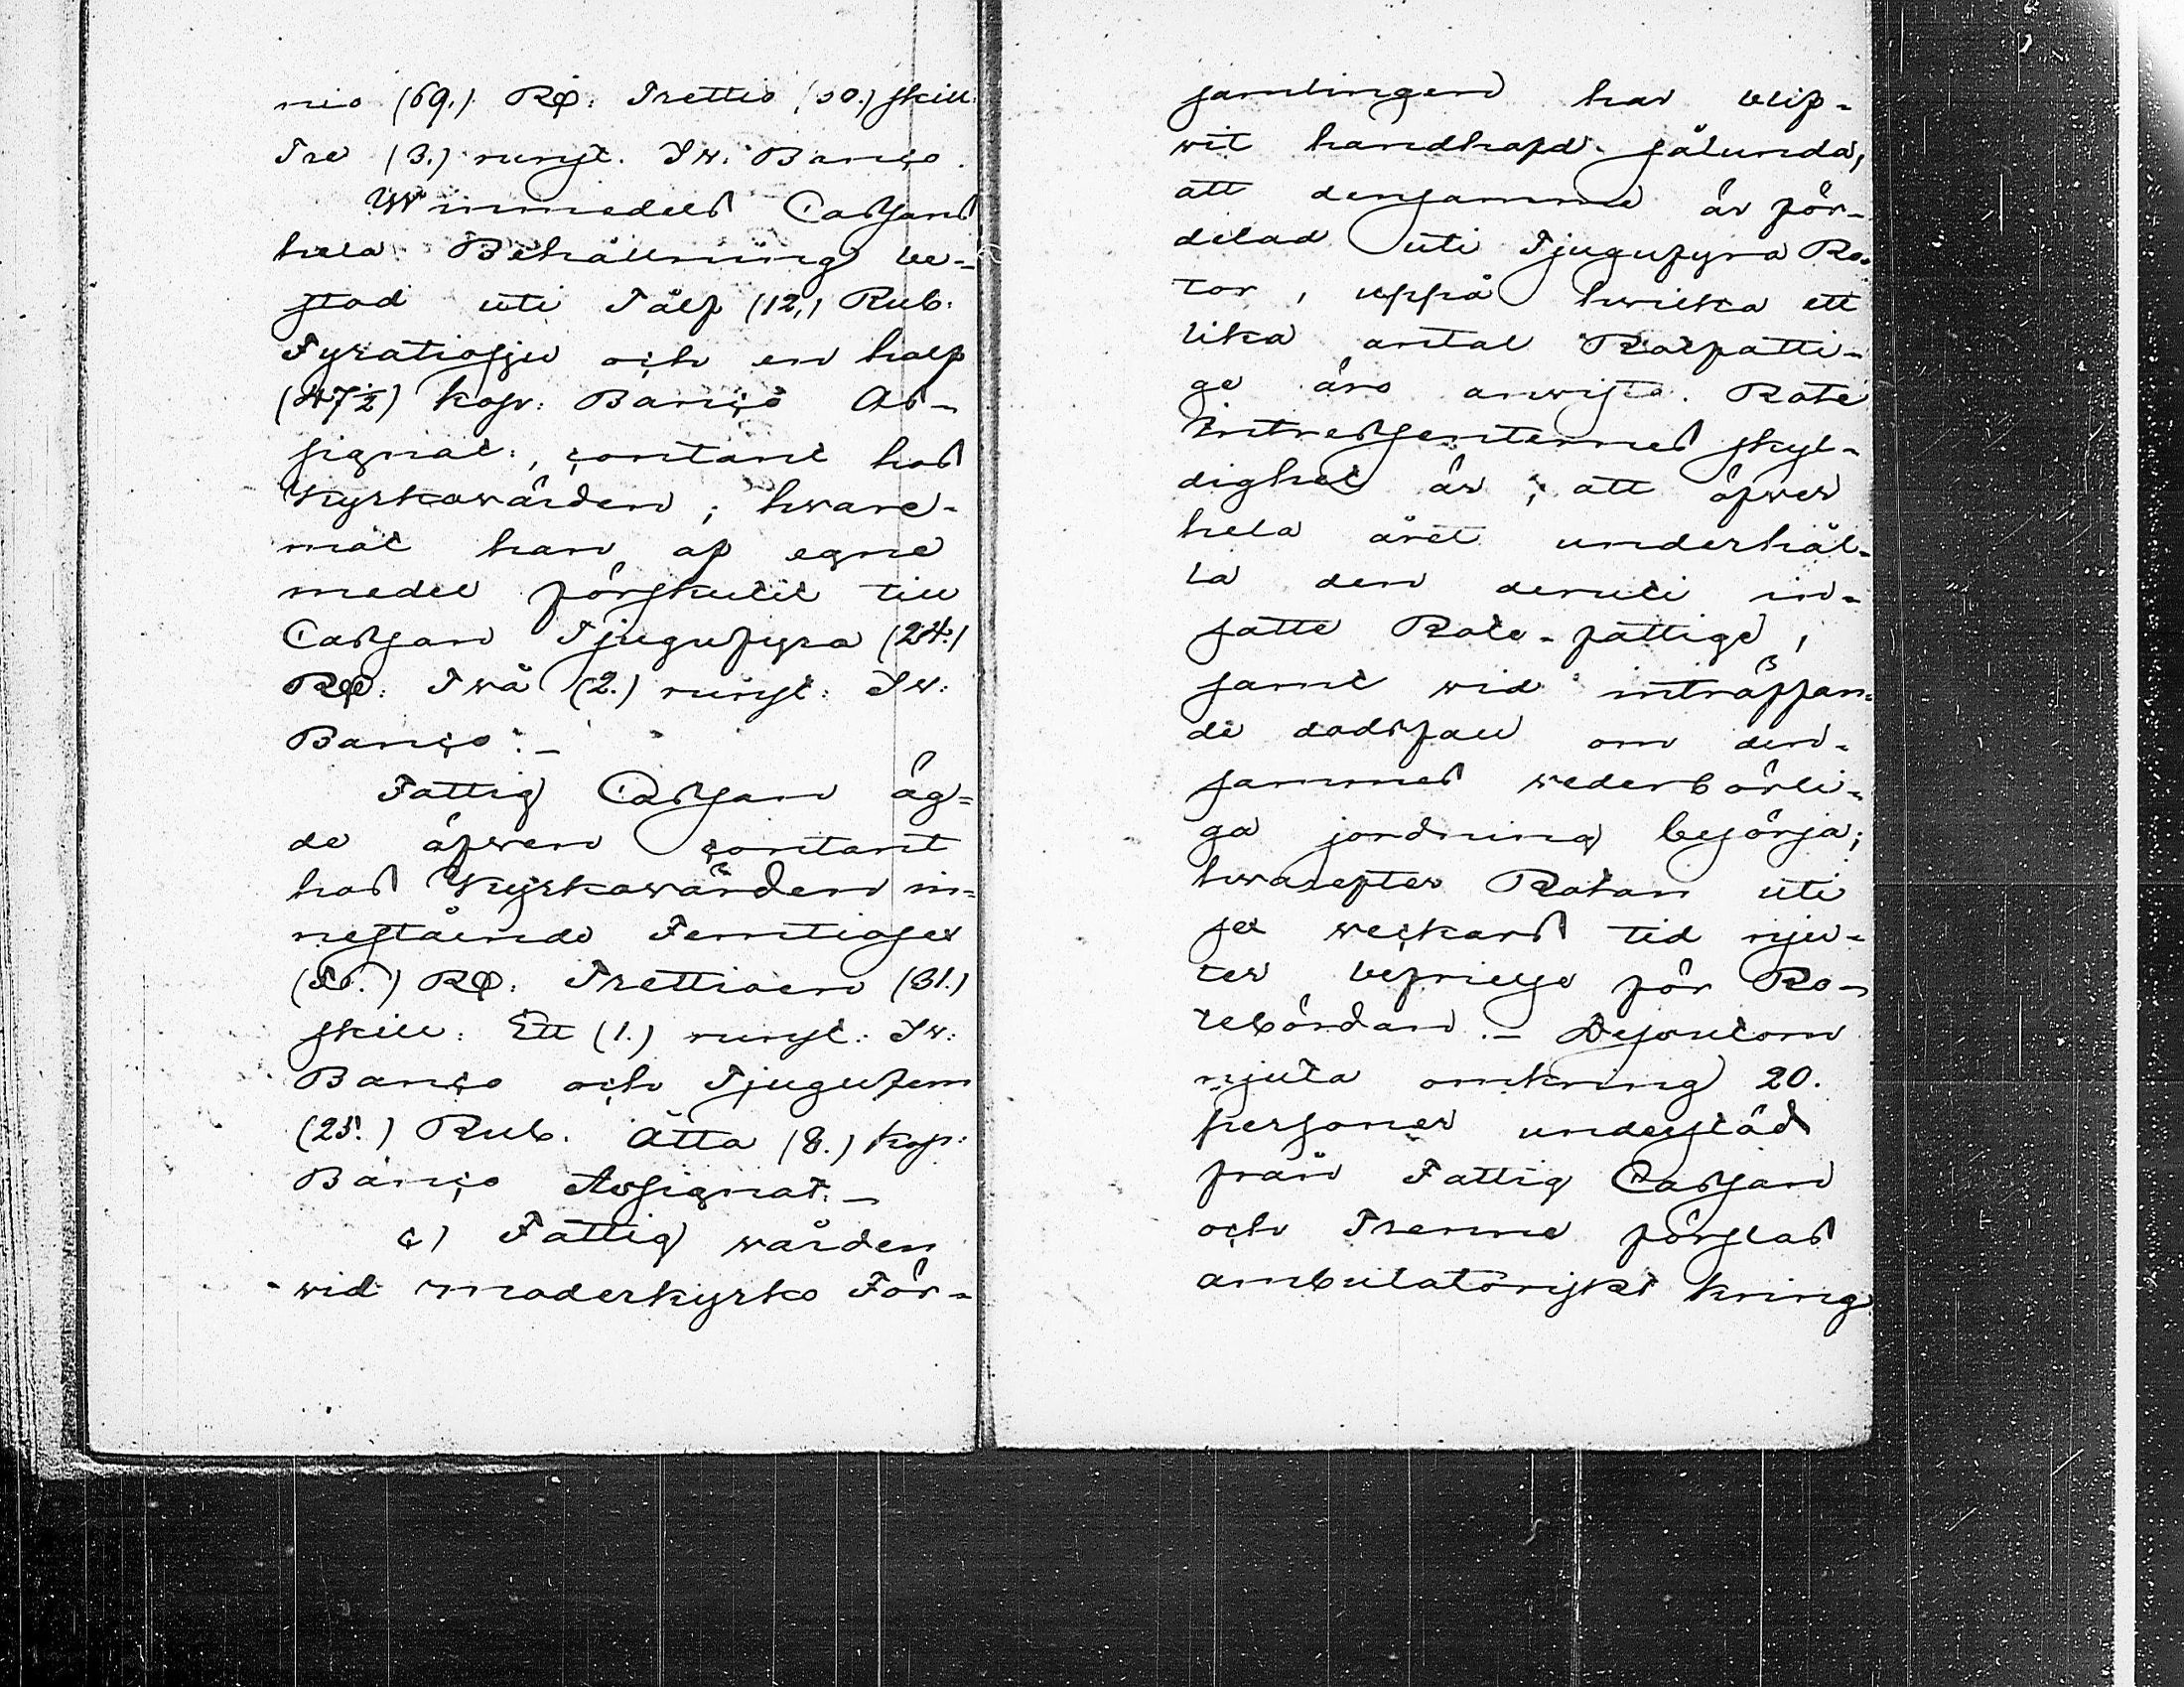 nio (69.) RD: Trettio (30.) skill:
Tre (3.) runst. Sw. Banco.
Winmedels Cassans
hela Behållning be-
stod uti Tålf (12.) Rub.
Fyratiosju och en half
(47½) kop: Banco As-
signat:, contant hos
Kyrkowärden; hware-
mot han af egne
medel förskutit till
Cassan Tjugufyra (24.)
RD: Twå (2.) runst: Sw:
Banco.–
Fattig Cassan äg-
de äfwen contant
hos Kyrkowärden in-
nestående Femtiosex
(56.) RD: Trettioen (31.)
skill: Ett (1.) runst: Sw:
Banco och Tjugufem
(25.) Rub. Åtta (8.) kop:
Banco Assignat.–
c) Fattig wården
wid moderkyrko För-
samlingen har blif-
wit handhafd sålunda,
att densamme är för-
delad uti Tjugufyra Ro-
tor, uppå hwilka ett
lika antal Rotfatti-
ge äro anwiste. Rote
Intressenternes skyl-
dighet är, att öfwer
hela året underhål-
la den deruti in-
satte Rote-fattige,
samt wid inträffan-
de dödsfall om den-
sammes wederbörli-
ga jordning besörja;
hwarefter Rotan uti
sex weckors tid nju-
ter befrielse för Ro-
tebördan.– Dessutom
njuta omkring 20.
personer understöd
från Fattig Cassan
och Trenne förslas
ambulatoriskt kring